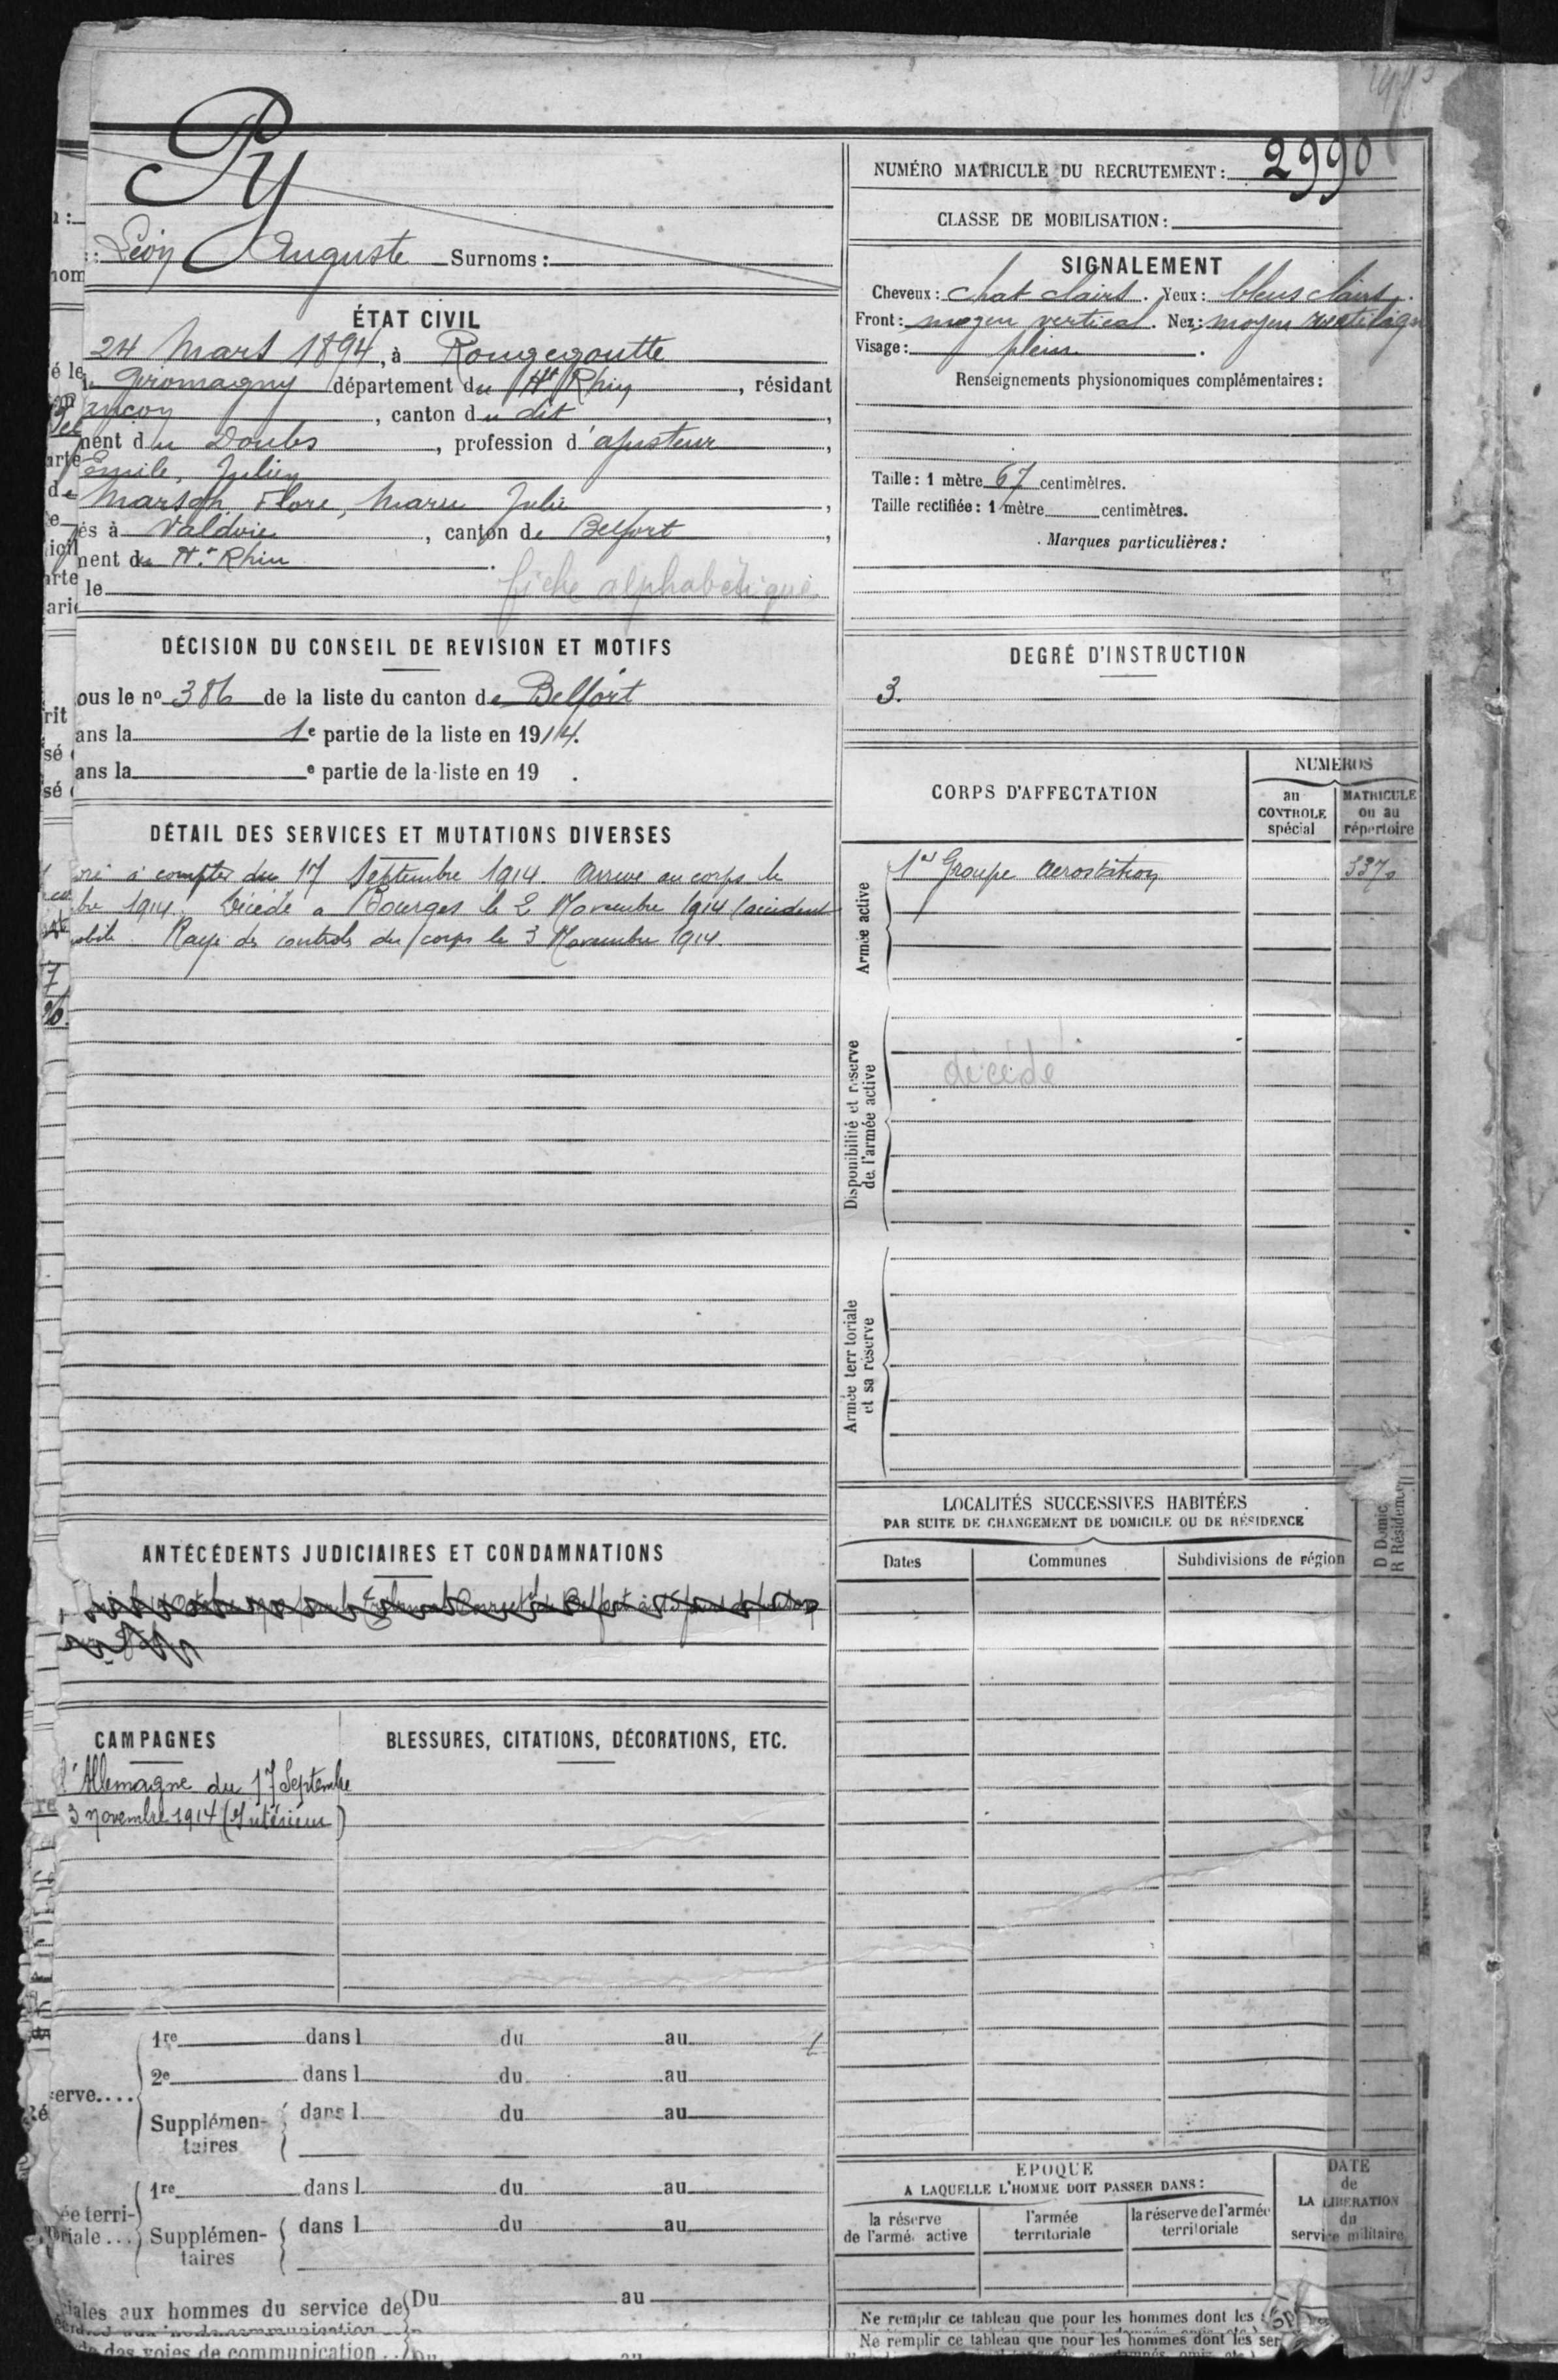 Py
NUMÉRO MATRICULE DU RECRUTEMENT: 2990
CLASSE DE MOBILISATION:
Léon Auguste Surnoms:
ÉTAT CIVIL
24 Mars 1894, à Rougegoutte
Giromagny département du Ht Rhin, résidant
ançon, canton du dit,
ment du Doubs, profession d'ajusteur,
Emile, Julien
Marson Flore, Marie Julie,
és à Valdoie, canton de Belfort,
ment du Ht Rhin.
le
fiche alphabétique
SIGNALEMENT
Cheveux: chat clairs. Yeux: bleus clairs.
Front: moyen vertical. Nez: moyen rectilign
Visage: plein.
Renseignements physionomiques complémentaires:
Taille: 1 mètre 67 centimètres.
Taille rectifiée: 1 mètre centimètres.
Marques particulières:
DÉCISION DU CONSEIL DE REVISION ET MOTIFS
ous le nº 386 de la liste du canton de Belfort
ans la 1e partie de la liste en 1914.
ans la e partie de la liste en 19 .
DEGRÉ D'INSTRUCTION
3.
DÉTAIL DES SERVICES ET MUTATIONS DIVERSES
à compter du 17 Septembre 1914. Arrivé au corps le
bre 1914. Décédé à Bourges le 2 Novembre 1914 (accident
mobile. Rayé des controls du corps le 3 Novembre 1914.
CORPS D'AFFECTATION
NUMÉROS
au CONTROLE spécial
MATRICULE ou au répertoire
Armée active
1er Groupe Aerostation
Disponibilité et réserve de l'armée active
décédé
Armée territoriale et sa réserve
ANTÉCÉDENTS JUDICIAIRES ET CONDAMNATIONS
LOCALITÉS SUCCESSIVES HABITÉES
PAR SUITE DE CHANGEMENT DE DOMICILE OU DE RÉSIDENCE
Dates Communes Subdivisions de région
D Domic
R Résidence
CAMPAGNES
l'Allemagne du 17 Septembre
3 novembre 1914 (Intérieur)
BLESSURES, CITATIONS, DÉCORATIONS, ETC.
1re dans l du au
2e dans l du au
erve....
Supplémentaires dans l du au
1re dans l du au
ée terri-
oriale...
Supplémentaires dans l du au
iales aux hommes du service de Du au
des voies de communication
EPOQUE
A LAQUELLE L'HOMME DOIT PASSER DANS:
la réserve de l'armée active
l'armée territoriale
la réserve de l'armée territoriale
DATE de LA LIBÉRATION du service militaire
Ne remplir ce tableau que pour les hommes dont les
Ne remplir ce tableau que pour les hommes dont les ser